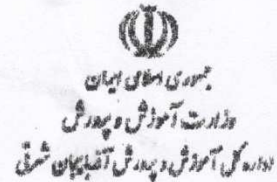 جمهوری اسلامی ایران
وزارت آموزش و پرورش
اداره کل آموزش و پرورش آذربایجان شرقی